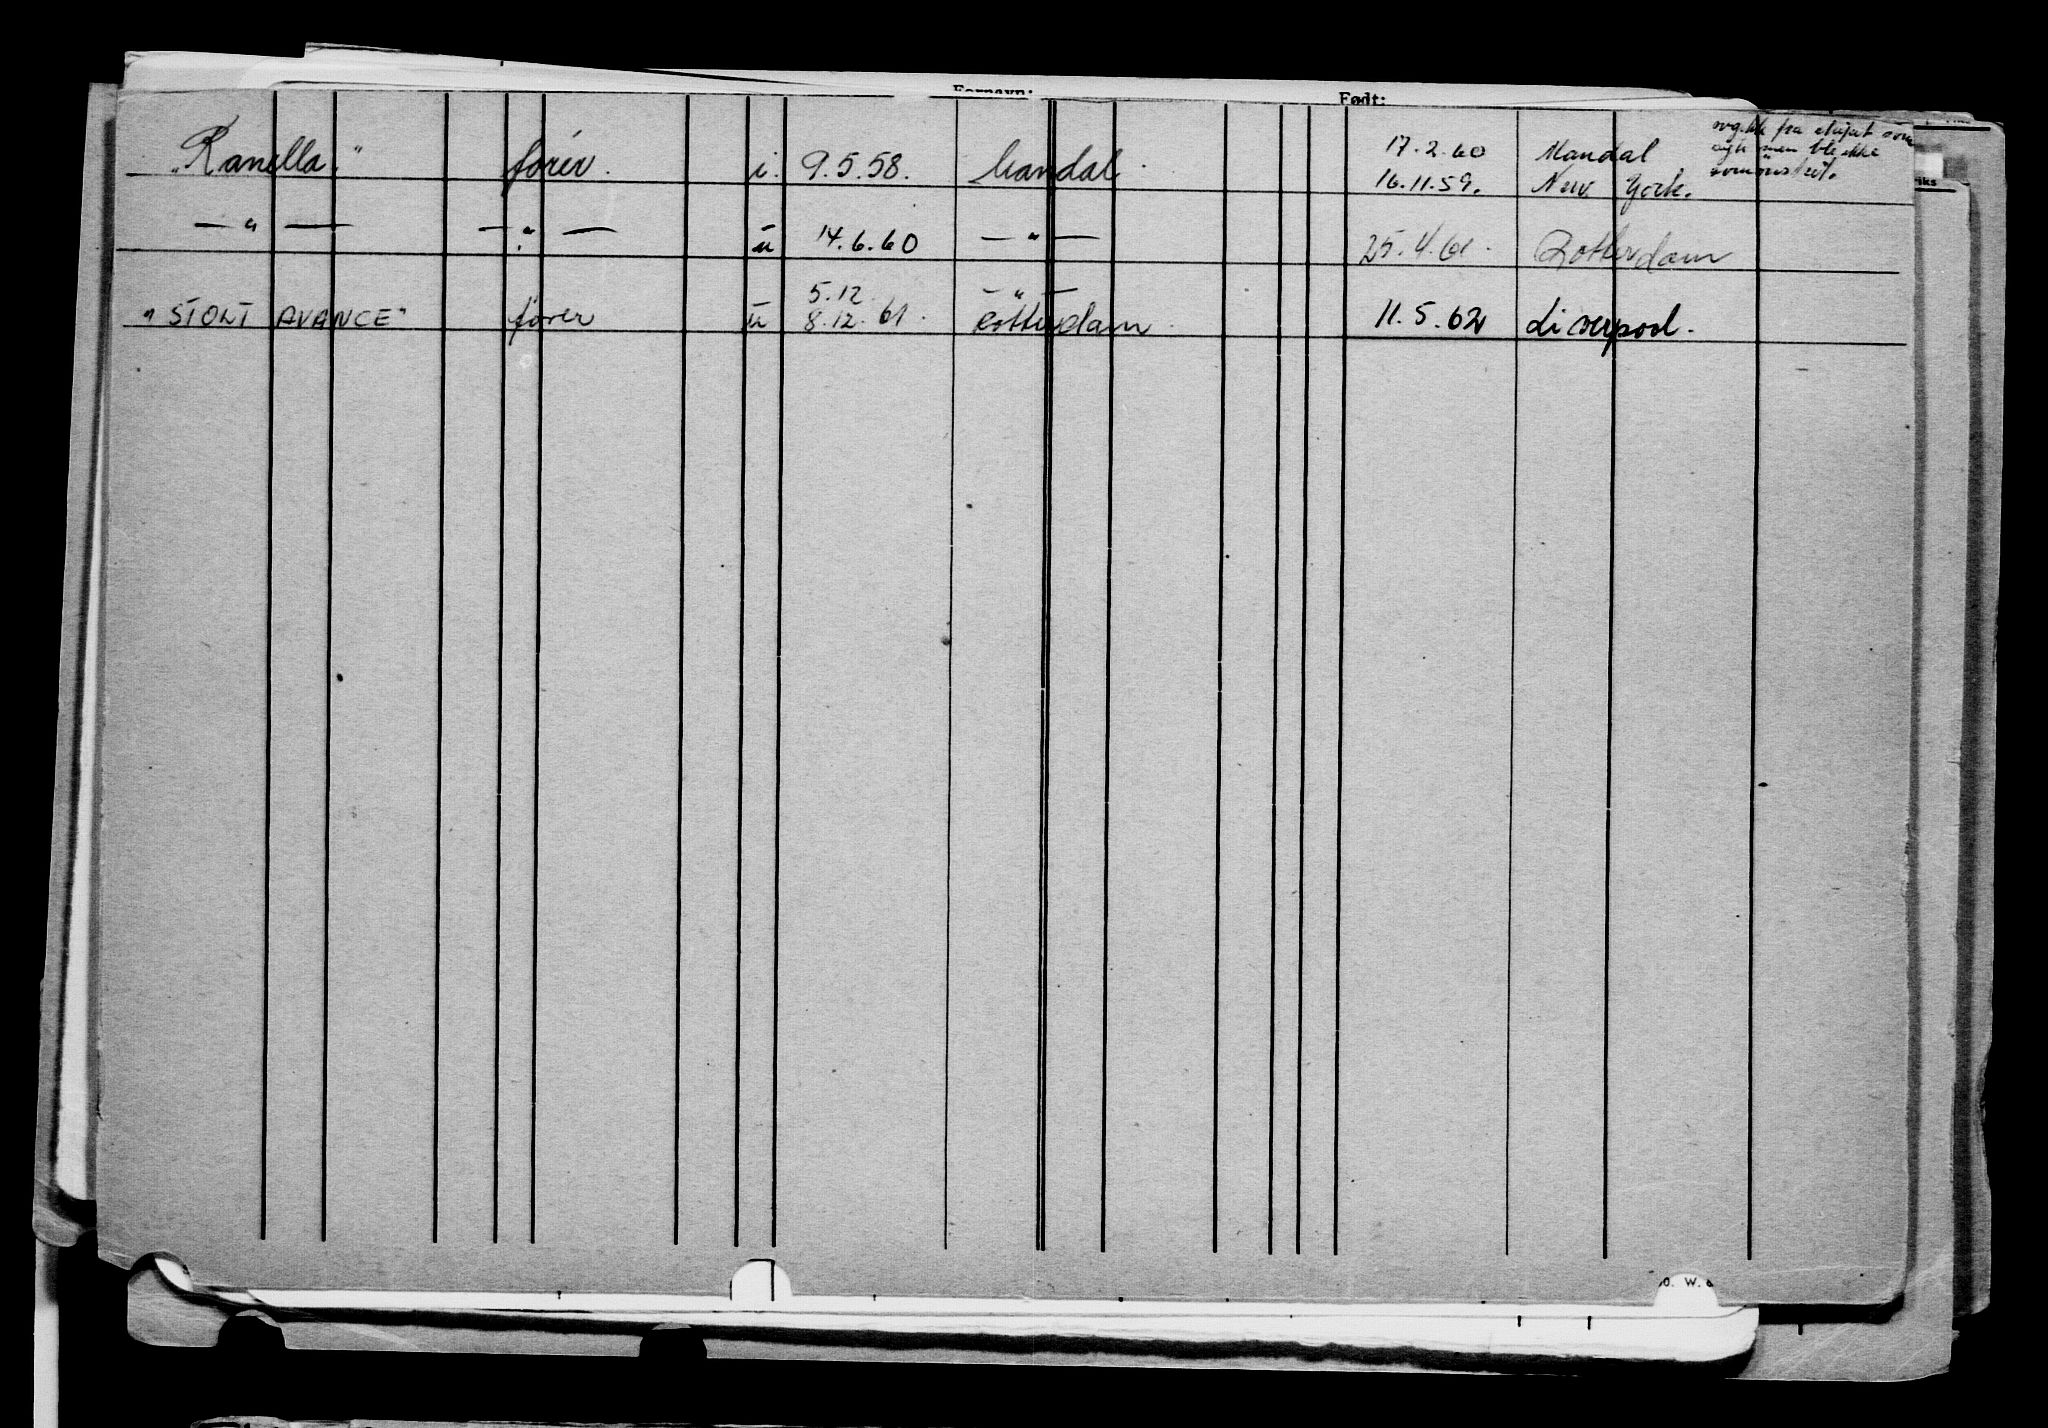 Fornavn: Født:
"Ranella." fører. i. 9.5.58. Mandal. 17.2.60 Mandal
16.11.59. New York.
fra skipet som
syk men ble ikke
— " — — " — u 14.6.60 — " — 25.4.61. Rotterdam
"STOLT AVANCE" fører u 5.12 8.12.61. — " — Rotterdam. 11.5.62 Liverpool.
O. W. 6